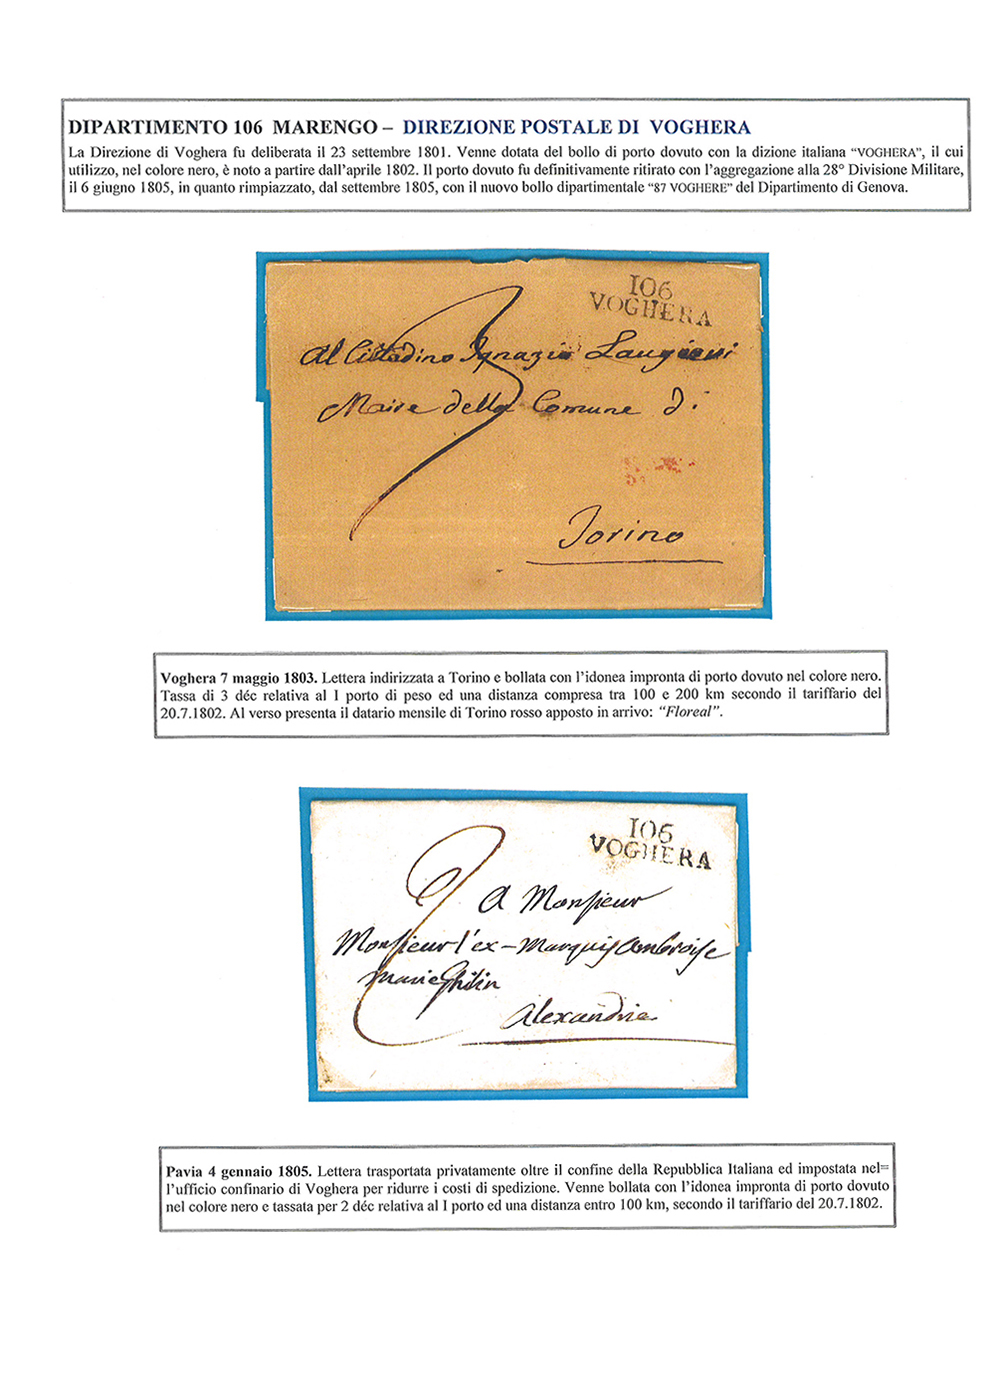 DIPARTIMENTO 106 MARENGO – DIREZIONE POSTALE DI VOGHERA
La Direzione di Voghera fu deliberata il 23 settembre 1801. Venne dotata del bollo di porto dovuto con la dizione italiana “VOGHERA”, il cui
utilizzo, nel colore nero, è noto a partire dall’aprile 1802. Il porto dovuto fu definitivamente ritirato con l’aggregazione alla 28° Divisione Militare,
il 6 giugno 1805, in quanto rimpiazzato, dal settembre 1805, con il nuovo bollo dipartimentale “87 VOGHERE” del Dipartimento di Genova.
106
VOGHERA
Al Cittadino Ignazio
Maire della Comune di
Torino
Voghera 7 maggio 1803. Lettera indirizzata a Torino e bollata con l’idonea impronta di porto dovuto nel colore nero.
Tassa di 3 déc relativa al I porto di peso ed una distanza compresa tra 100 e 200 km secondo il tariffario del
20.7.1802. Al verso presenta il datario mensile di Torino rosso apposto in arrivo: “Floreal”.
106
VOGHERA
A Monsieur
Monsieur l'ex-Marquis Ambroise
Marie Ghilin
Alexandrie
Pavia 4 gennaio 1805. Lettera trasportata privatamente oltre il confine della Repubblica Italiana ed impostata nel=
l’ufficio confinario di Voghera per ridurre i costi di spedizione. Venne bollata con l’idonea impronta di porto dovuto
nel colore nero e tassata per 2 déc relativa al I porto ed una distanza entro 100 km, secondo il tariffario del 20.7.1802.